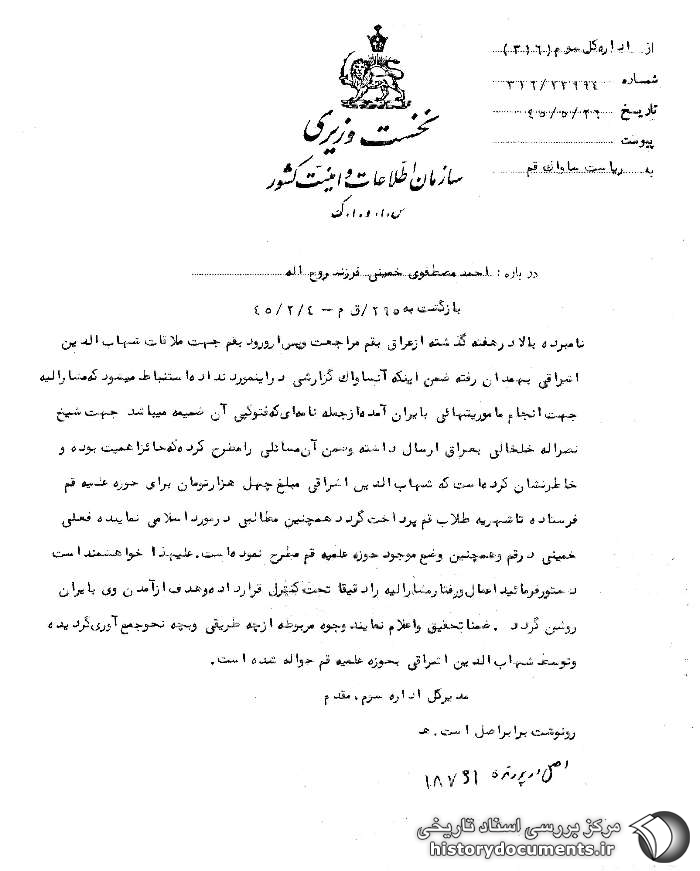 از اداره کل سوم (۳۱٦)
شماره ۳۱۶/۲۲۹۹٤
تاریخ ٤٥/٥/۲٦
پیوست
به ریاست ساواك قم
نخست وزیری
سازمان اطلاعات و امنیت کشور
س.ا.و.ا.ک
درباره : احمد مصطفوی خمینی فرزند روح اله
بازگشت به ۲۹٥/ق م – ٤٥/۲/٤
نامبرده بالا در هفته گذشته از عراق بقم مراجعت و پس از ورود بقم جهت ملاقات شهاب الدین
اشراقی بهمدان رفته ضمن اینکه آنساواك گزارشی در اینمورد نداده استنباط میشود که مشارالیه
جهت انجام ماموریتهائی بایران آمده از جمله نامه‌ای که فتوکپی آن ضمیمه میباشد جهت شیخ
نصراله خلخالی بعراق ارسال داشته و ضمن آن مسائلی را مطرح کرده که حائز اهمیت بوده و
خاطرنشان کرده است که شهاب الدین اشراقی مبلغ چهل هزار تومان برای حوزه علمیه قم
فرستاده تا شهریه طلاب قم پرداخت گردد همچنین مطالبی در مورد اسلامی نماینده فعلی
خمینی در قم و همچنین وضع موجود حوزه علمیه قم مطرح نموده است. علیهذا خواهشمند است
دستور فرمائید اعمال و رفتار مشارالیه را دقیقا تحت کنترل قرار داده و هدف از آمدن وی بایران
روشن گردد . ضمنا تحقیق و اعلام نمایند وجوه مربوطه از چه طریقی و بچه نحو جمع آوری گردیده
و توسط شهاب الدین اشراقی بحوزه علمیه قم حواله شده است.
مدیرکل اداره سوم. مقدم
رونوشت برابر اصل است. هـ
اصل در پرونده ۱۸۷۹۱
مرکز بررسی اسناد تاریخی
historydocuments.ir